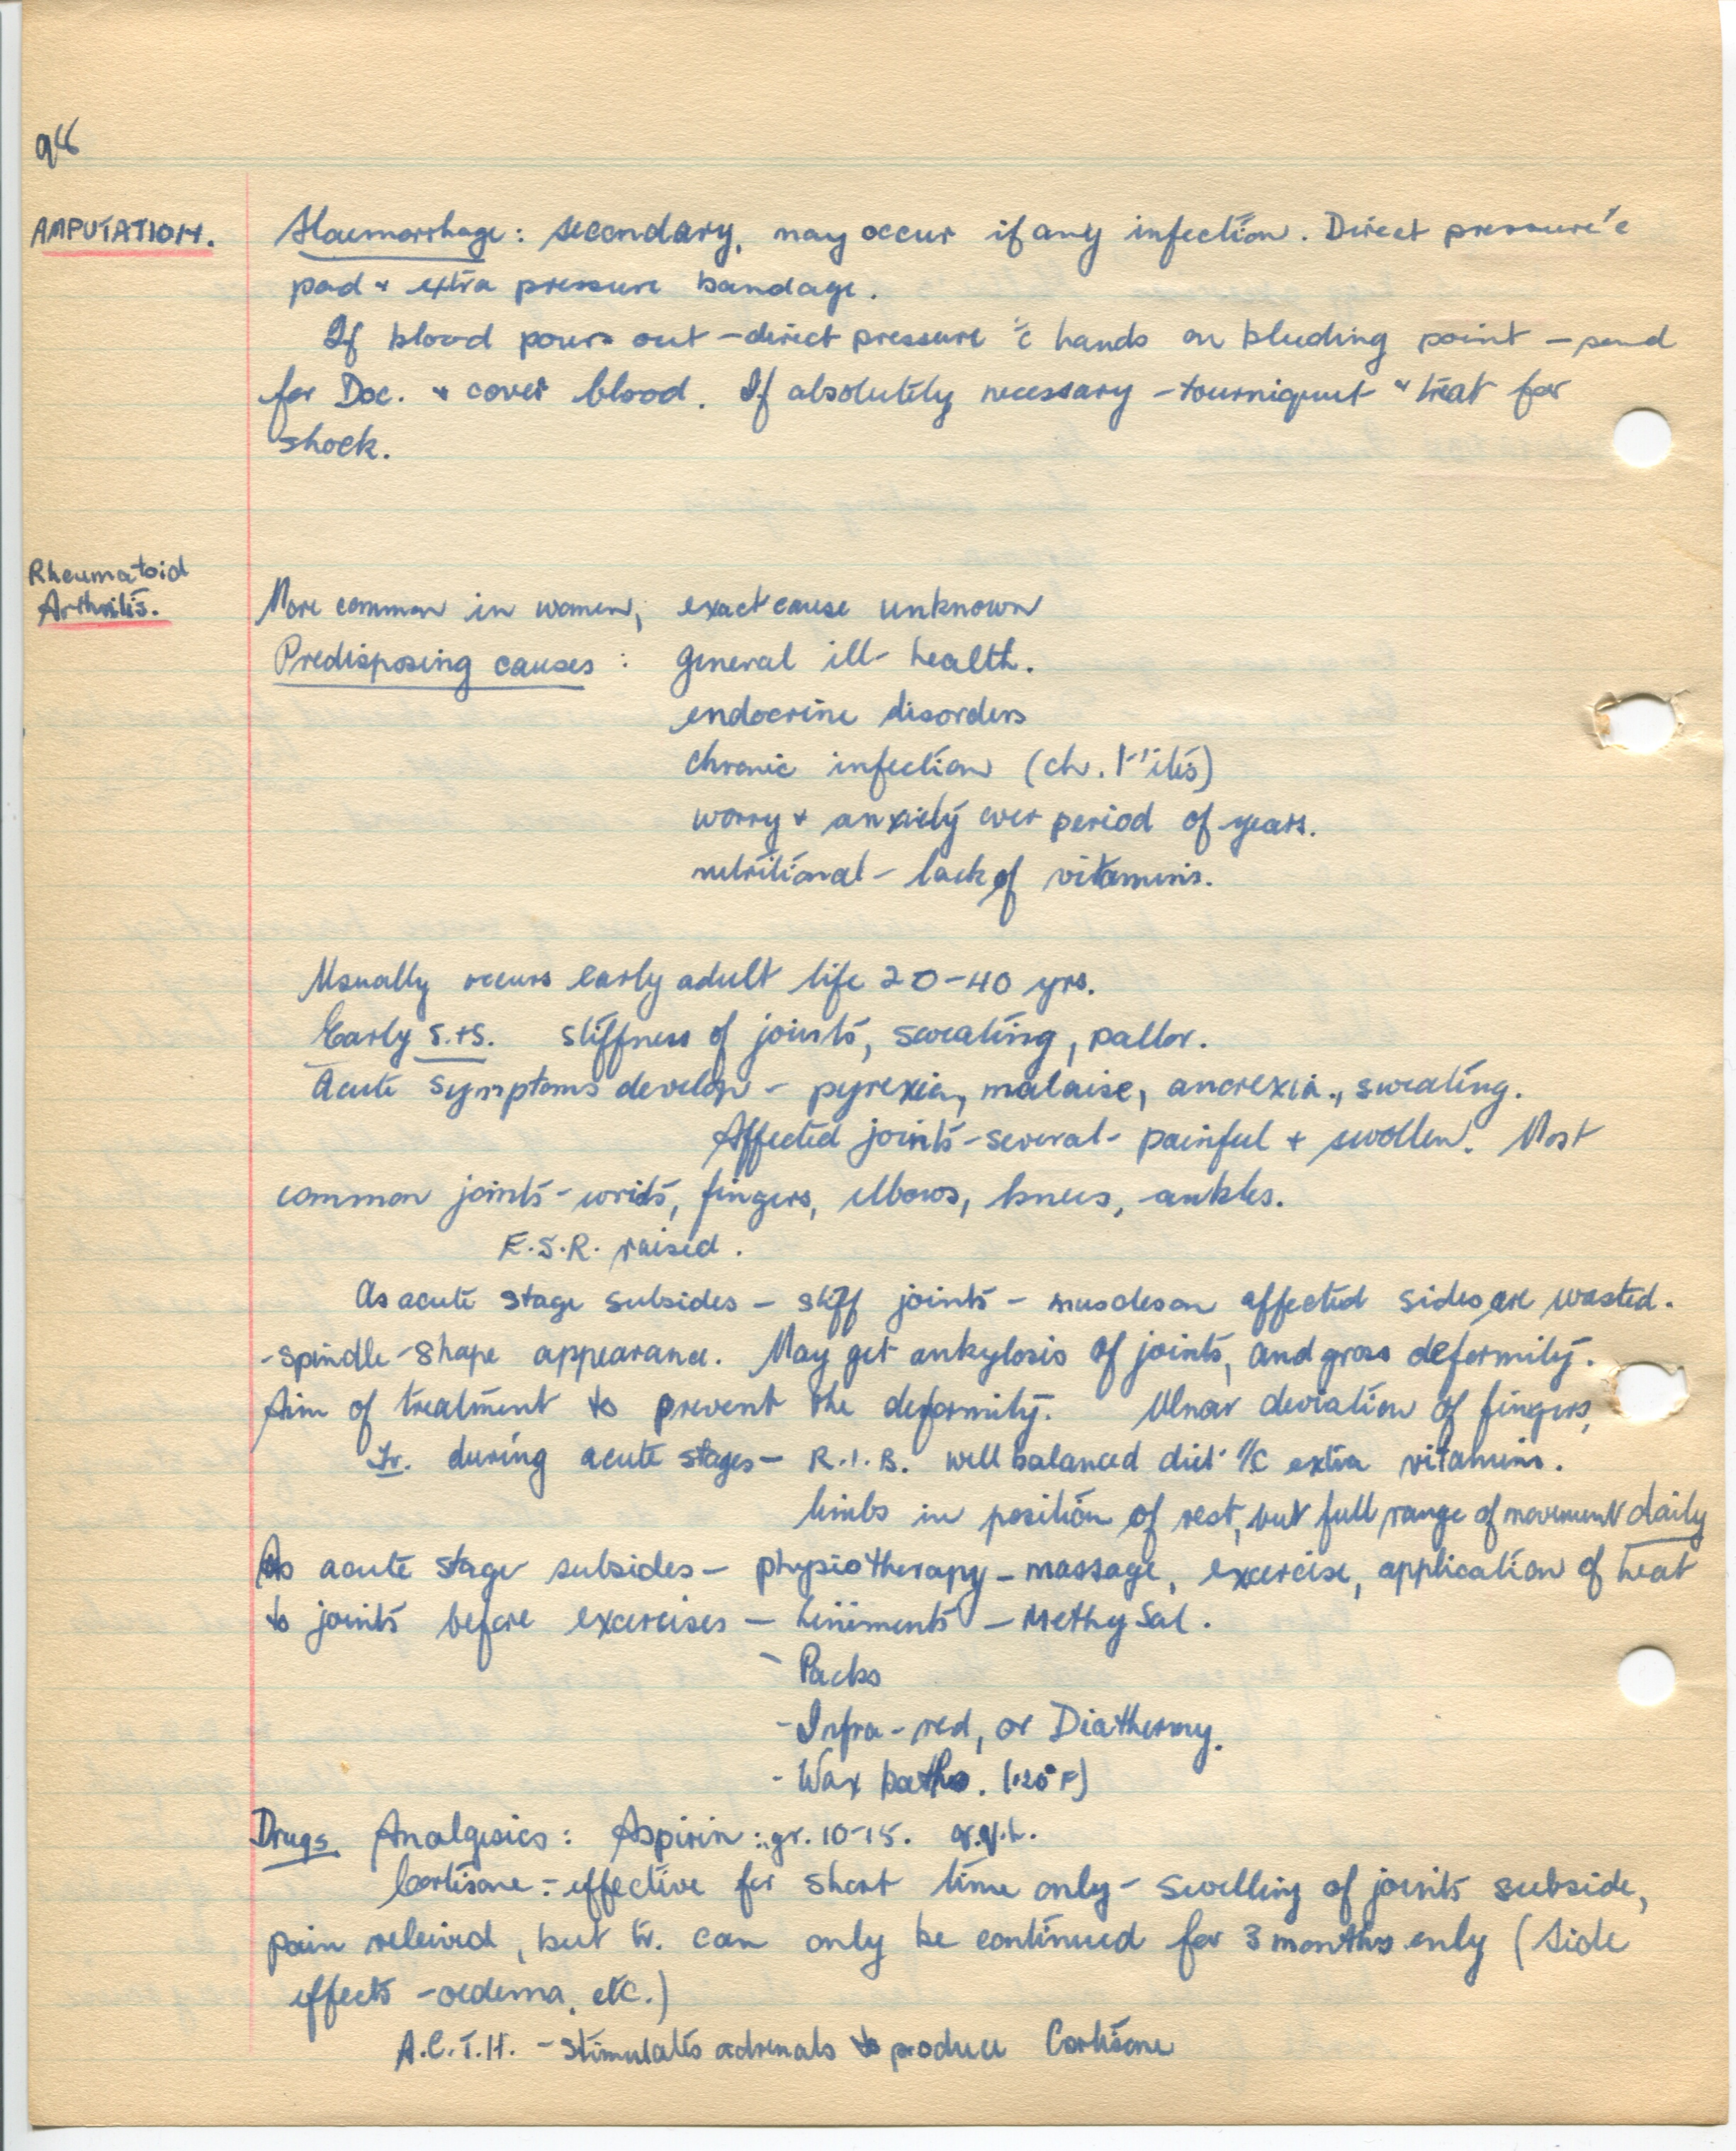 98
AMPUTATION.
Haemorrhage: secondary, may occur if any infection. Direct pressure c̄
pad + extra pressure bandage.
If blood pours out - direct pressure c̄ hands on bleeding point - send
for Doc. + cover blood. If absolutely necessary - tourniquet + treat for
shock.
Rheumatoid
Arthritis.
More common in women, exact cause unknown
Predisposing causes: general ill-health.
endocrine disorders
chronic infection (ch. T'itis)
worry + anxiety over period of years.
nutritional - lack of vitamins.
Usually occurs early adult life 20-40 yrs.
Early S.+S. stiffness of joints, sweating, pallor.
Acute symptoms develop - pyrexia, malaise, anorexia., sweating.
Affected joints - several - painful + swollen. Most
common joints - wrists, fingers, elbows, knees, ankles.
E.S.R. raised.
As acute stage subsides - stiff joints - muscles on affected sides are wasted.
- spindle-shape appearance. May get ankylosis of joints, and gross deformity.
Aim of treatment to prevent the deformity. Ulnar deviation of fingers,
Tr. during acute stages - R.I.B. well balanced diet c̄ extra vitamins.
limbs in position of rest, but full range of movement daily
As acute stage subsides - physiotherapy - massage, excercise, application of heat
to joints before excercises - Liniments - Methy Sal.
- Packs
- Infra-red, or Diathermy.
- Wax baths. (120°F)
Drugs Analgesics: Aspirin: gr. 10-15. q.4.h.
Cortisone: - effective for short time only - swelling of joints subside,
pain releived, but tr. can only be continued for 3 months only (side
effects - oedema, etc.)
A.C.T.H. - stimulates adrenals to produce Cortisone